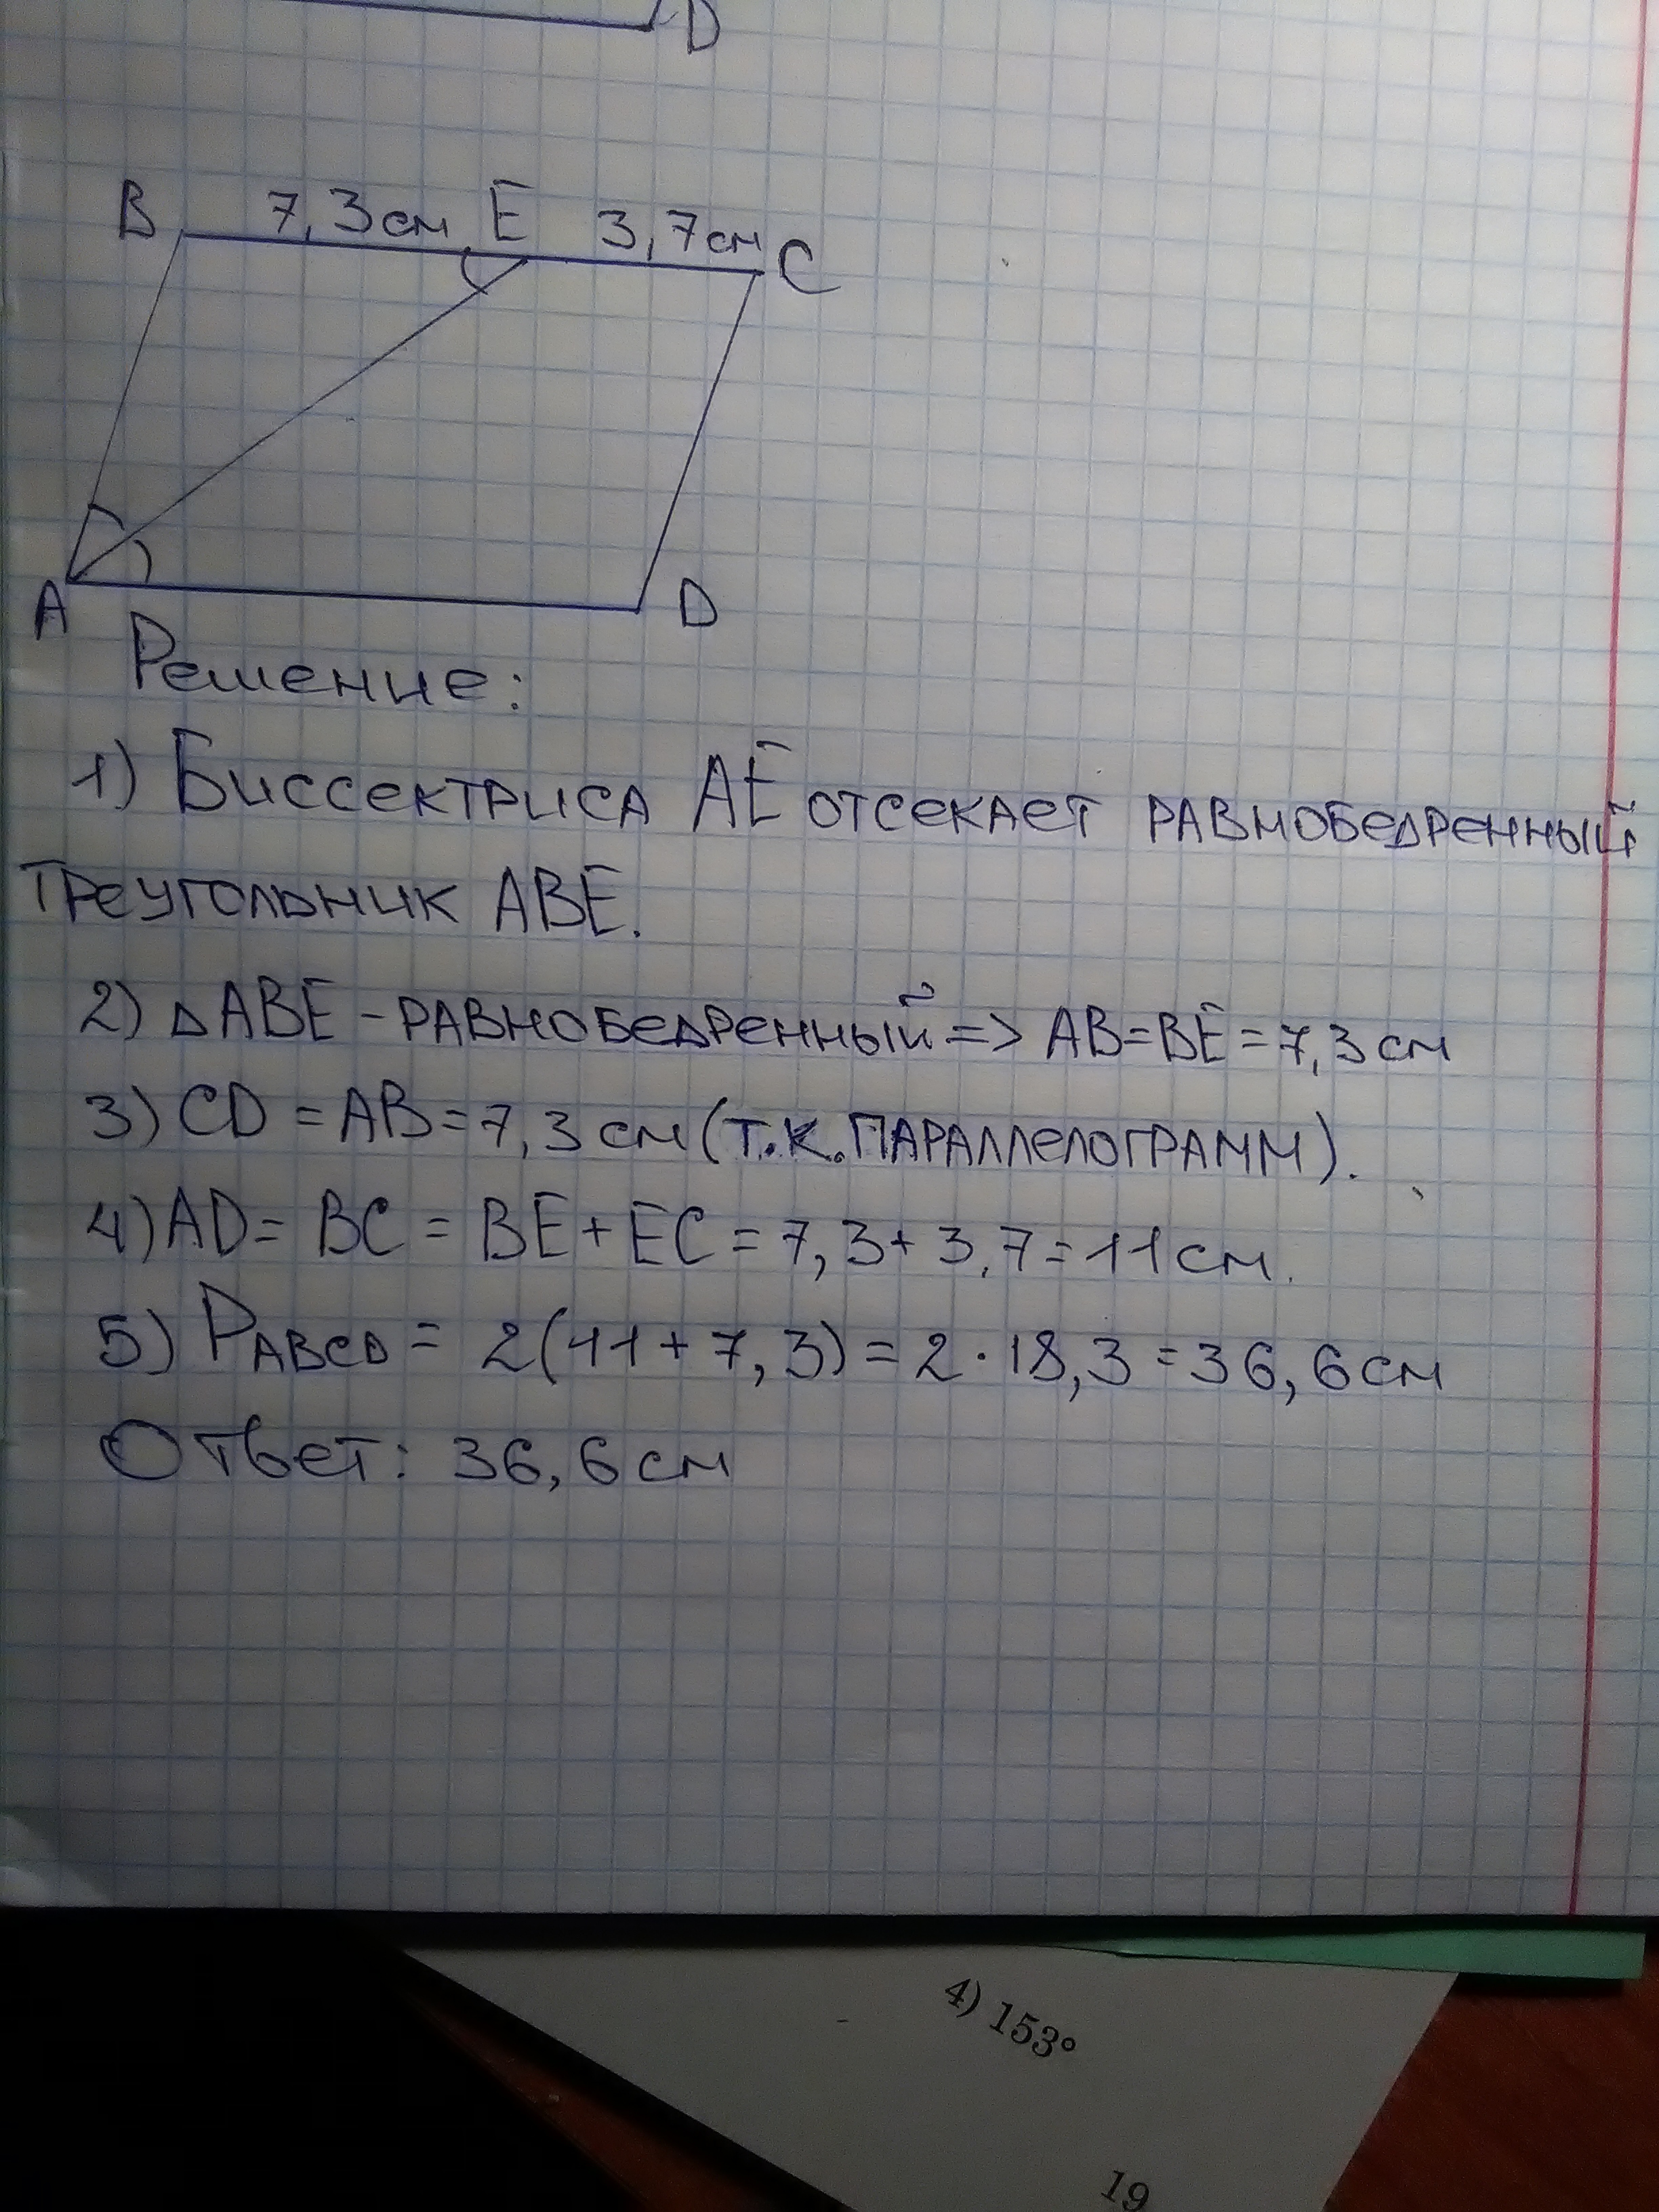 D
B 7,3см E 3,7см C
A D
Решение:
1) Биссектриса AE отсекает равнобедренный
треугольник ABE.
2) △ABE - равнобедренный => AB=BE=7,3см
3) CD = AB=7,3см (т.к. параллелограмм).
4) AD= BC = BE+EC=7,3+3,7=11см.
5) PABCD = 2(11+7,3)=2·18,3=36,6см
Ответ: 36,6см
4) 153°
19